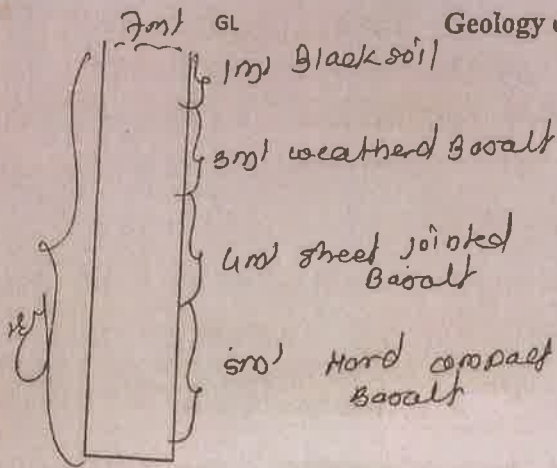 7mt GL Geology
1mt Black soil
3mt weatherd Basalt
4mt sheet jointed
Basalt
5mt Hard compact
Basalt